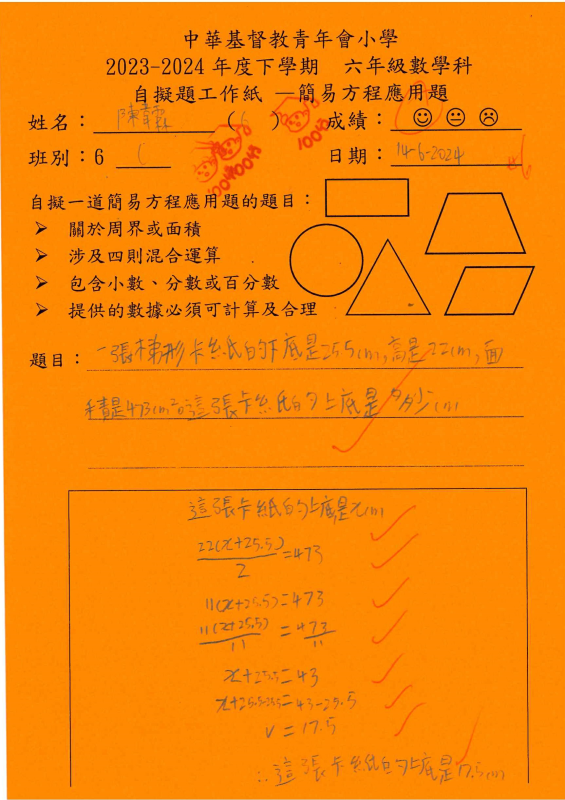 中華基督教青年會小學
2023-2024 年度下學期 六年級數學科
自擬題工作紙 —簡易方程應用題
姓名： 陳 ( 6 ) 成績：
班別：6 C 日期： 14-6-2024
100分 100分 100分
自擬一道簡易方程應用題的題目：
➤ 關於周界或面積
➤ 涉及四則混合運算
➤ 包含小數、分數或百分數
➤ 提供的數據必須可計算及合理
題目： 一張梯形卡紙的下底是25.5cm,高是22cm,面
積是473cm²。這張卡紙的上底是多少cm
這張卡紙的上底是xcm
22(x+25.5)/2=473
11(x+25.5)=473
11(x+25.5)/11=473/11
x+25.5=43
x+25.5-25.5=43-25.5
x=17.5
∴這張卡紙的上底是17.5cm